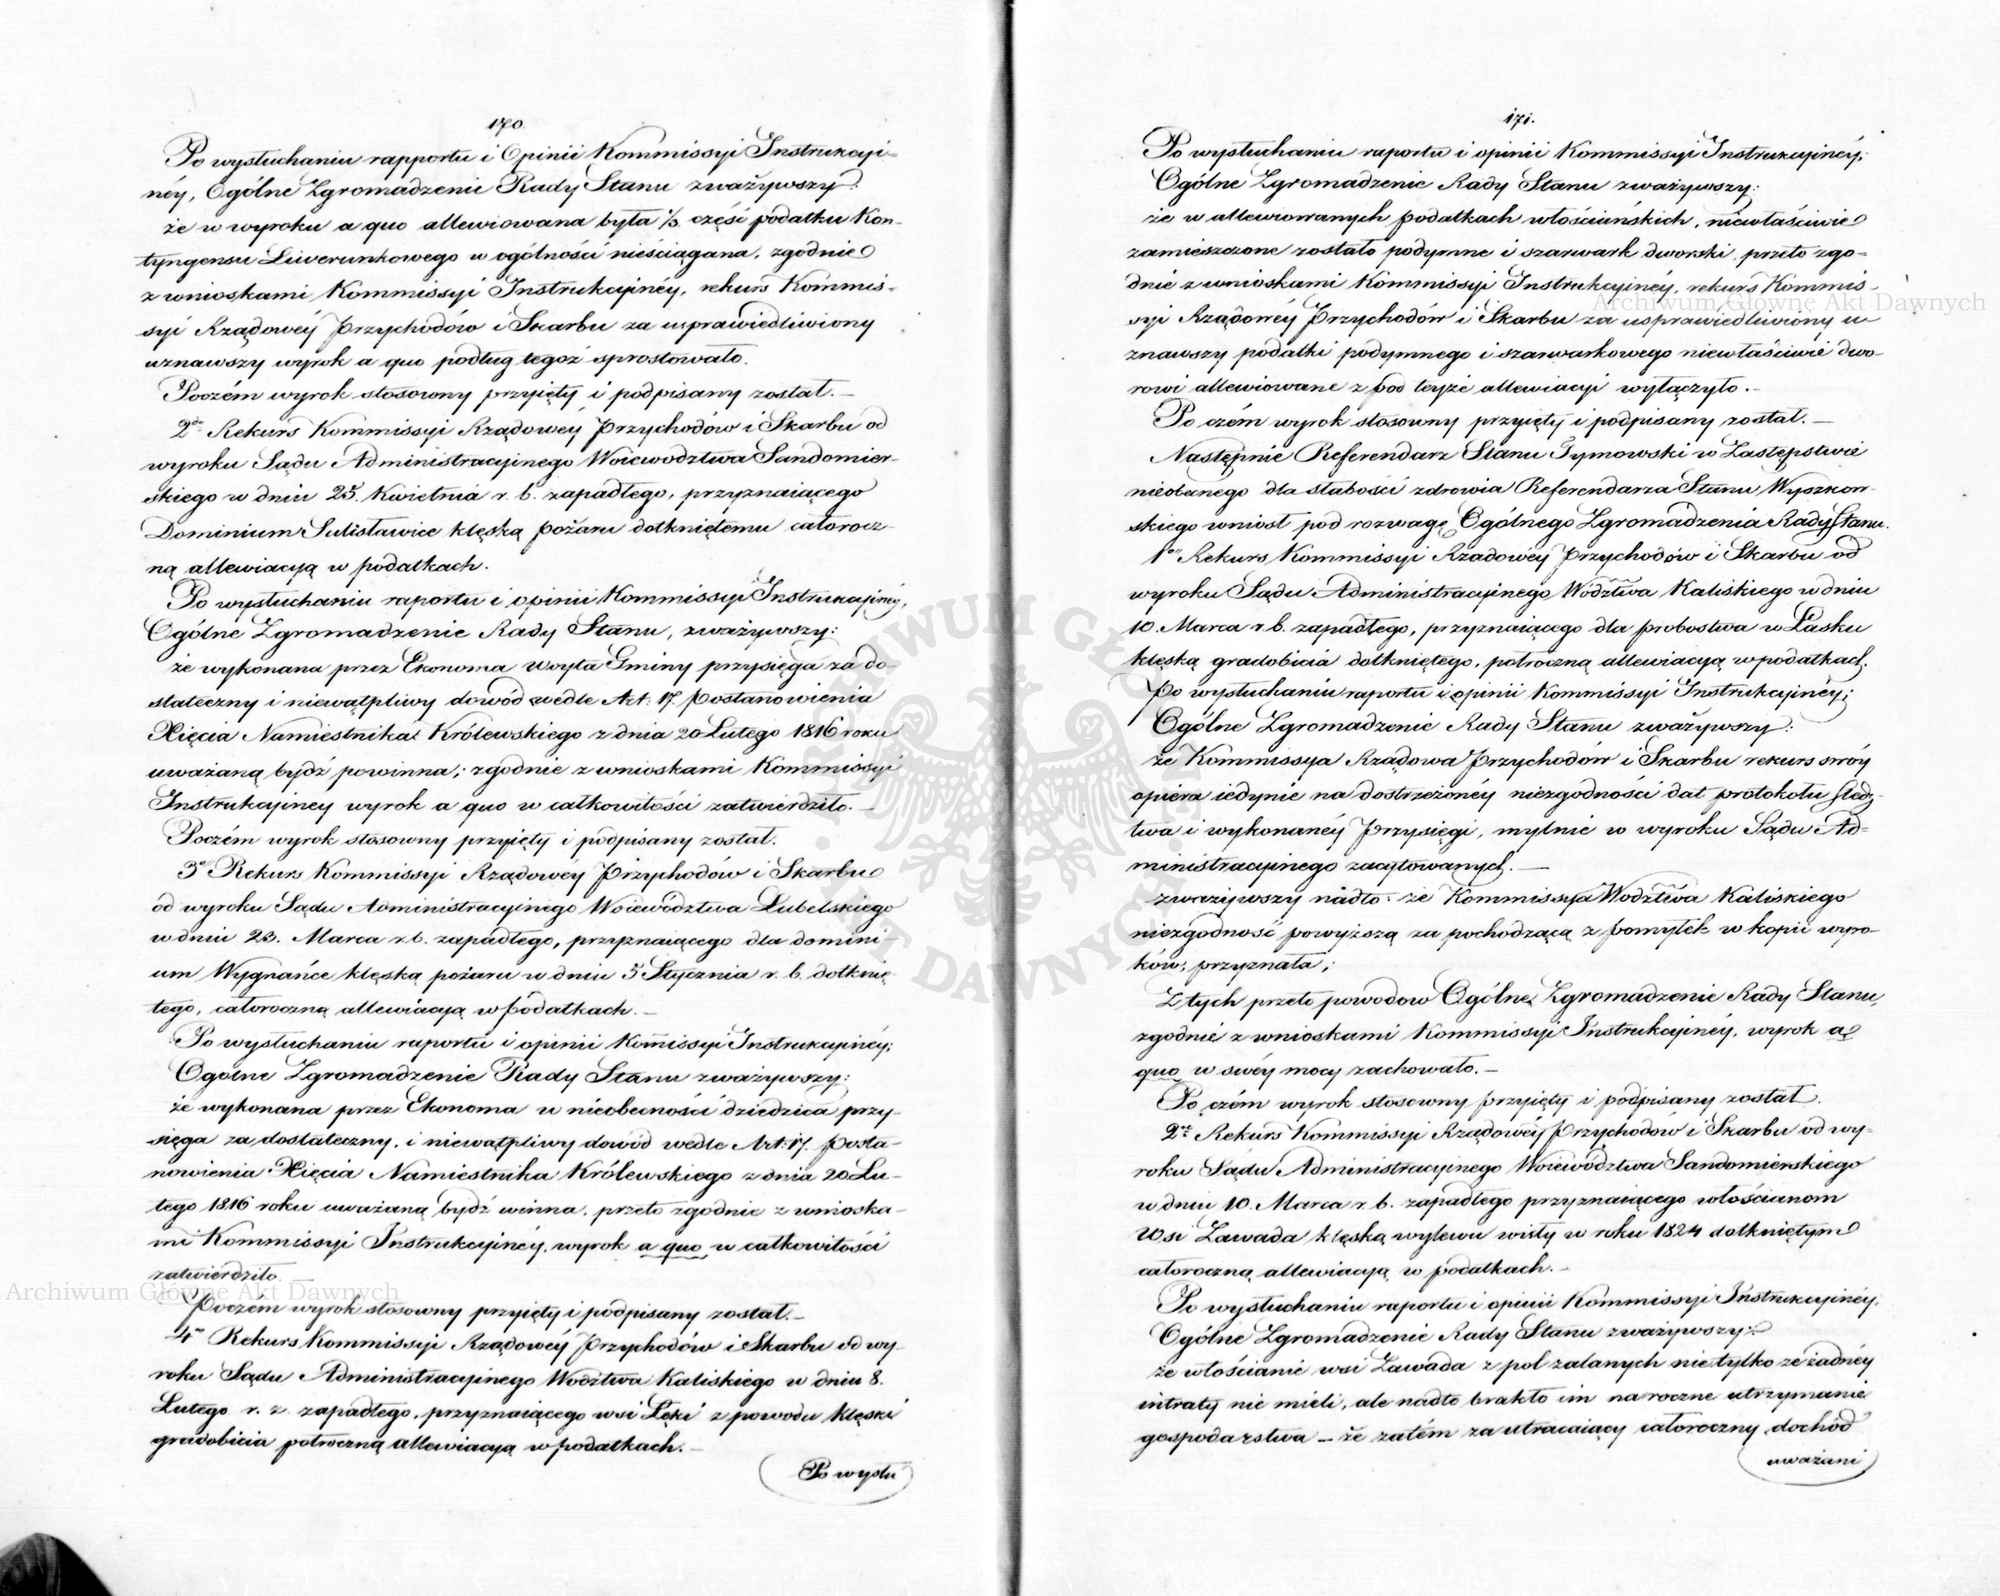 170.
Po wysłuchaniu rapportu i Opinii Kommissyi Instrukcyi-
néy, Ogólne Zgromadzenie Rady Stanu zważywszy:
że w wyroku a quo allewiowana była 1/3 część podatku Kon-
tyngensu Liwerunkowego w ogólności nieściągana, zgodnie
z wnioskami Kommissyi Instrukcyinéy, rekurs Kommis-
syi Rządowéy Przychodów i Skarbu za usprawiedliwiony
uznawszy wyrok a quo podług tegoż sprostowało.
Poczém wyrok stosowny przyięty i podpisany został.—
2do Rekurs Kommissyi Rządowéy Przychodów i Skarbu od
wyroku Sądu Administracyinego Woiewodztwa Sandomier-
skiego w dniu 25. Kwietnia r. b. zapadłego, przyznaiącego
Dominium Sulisławice klęską pożaru dotkniętemu całorocz-
ną allewiacyą w podatkach.
Po wysłuchaniu raportu i opinii Kommissyi Instrukcyinéy,
Ogólne Zgromadzenie Rady Stanu, zważywszy:
że wykonana przez Ekonoma Woyta Gminy przysięga za do-
stateczny i niewątpliwy dowód wedle Art: 17. Postanowienia
Xięcia Namiestnika Królewskiego z dnia 20 Lutego 1816 roku
uważaną bydź powinna; zgodnie z wnioskami Kommissyi
Instrukcyiney wyrok a quo w całkowitości zatwierdziło.—
Poczém wyrok stosowny przyięty i podpisany został.
3o Rekurs Kommissyi Rządowéy Przychodów i Skarbu
od wyroku Sądu Administracyinego Woiewodztwa Lubelskiego
w dniu 23. Marca r. b. zapadłego, przyznaiącego dla domini-
um Wygnańce klęską pożaru w dniu 5 Stycznia r. b. dotknię-
tego, całoroczną allewiacyą w podatkach.—
Po wysłuchaniu raportu i opinii Kom̄issyi Instrukcyinéy;
Ogólne Zgromadzenie Rady Stanu zważywszy:
że wykonana przez Ekonoma w nieobecności dziedzica przy-
sięga za dostateczny, i niewątpliwy dowód wedle Art: 17. Posta-
nowienia Xięcia Namiestnika Królewskiego z dnia 20 Lu-
tego 1816 roku uważaną bydź winna, przeto zgodnie z wnioska-
mi Kommissyi Instrukcyinéy, wyrok a quo w całkowitości
zatwierdziło.—
Poczém wyrok stosowny przyięty i podpisany został.—
4to Rekurs Kommissyi Rządowéy Przychodów i Skarbu od wy-
roku Sądu Administracyinego Wodztwa Kaliskiego w dniu 8.
Lutego r. z. zapadłego, przyznaiącego wsi Lęki z powodu klęski
gradobicia półroczną allewiacyą w podatkach.—
Po wysłu
171.
Po wysłuchaniu raportu i opinii Kommissyi Instrukcyinéy;
Ogólne Zgromadzenie Rady Stanu zważywszy:
że w allewiowanych podatkach włościańskich, niewłaściwie
zamieszczone zostało podymne i szarwark dworski, przeto zgo-
dnie z wnioskami Kommissyi Instrukcyinéy, rekurs Kommis-
syi Rządowéy Przychodów i Skarbu za usprawiedliwiony u-
znawszy podatki podymnego i szarwarkowego niewłaściwie dwo-
rowi allewiowane z pod teyże allewiacyi wyłączyło.—
Po czém wyrok stosowny przyięty i podpisany został.—
Następnie Referendarz Stanu Tymowski w Zastępstwie
nieobecnego dla słabości zdrowia Referendarza Stanu Wyszkow-
skiego wniosł pod rozwagę Ogólnego Zgromadzenia Rady Stanu.
1o Rekurs Kommissyi Rządowéy Przychodów i Skarbu od
wyroku Sądu Administracyinego Wodztwa Kaliskiego w dniu
10. Marca r. b. zapadłego, przyznaiącego dla probostwa w Lasku
klęską gradobicia dotkniętego, półroczną allewiacyą w podatkach.
Po wysłuchaniu raportu i opinii Kommissyi Instrukcyinéy;
Ogólne Zgromadzenie Rady Stanu zważywszy:
że Kommissya Rządowa Przychodów i Skarbu rekurs swóy
opiera iedynie na dostrzeżonéy niezgodności dat protokołu śledz-
twa i wykonanéy Przysięgi, mylnie w wyroku Sądu Ad-
ministracyinego zacytowanych.—
zważywszy nadto: że Kommissya Wodztwa Kaliskiego
niezgodność powyższą za pochodzącą z pomyłek w kopii wyro-
ków, przyznała;
Z tych przeto powodow Ogólne Zgromadzenie Rady Stanu,
zgodnie z wnioskami Kommissyi Instrukcyinéy, wyrok a
quo w swéy mocy zachowało.—
Po czém wyrok stosowny przyięty i podpisany został.
2re Rekurs Kommissyi Rządowéy Przychodów i Skarbu od wy-
roku Sądu Administracyinego Woiewództwa Sandomierskiego
w dniu 10. Marca r. b. zapadłego przyznaiącego włościanom
Wsi Zawada klęską wylewu wisły w roku 1824 dotkniętym
całoroczną allewiacyą w podatkach.—
Po wysłuchaniu raportu i opinii Kommissyi Instrukcyinéy,
Ogólne Zgromadzenie Rady Stanu zważywszy:
że włościanie wsi Zawada z pol zalanych nie tylko że żadnéy
intraty nie mieli, ale nadto brakło im na roczne utrzymanie
gospodarstwa — że zatém za utracaiący całoroczny dochód
uważani
Archiwum Główne Akt Dawnych
Archiwum Główne Akt Dawnych
ARCHIWUM GŁÓWNE AKT DAWNYCH